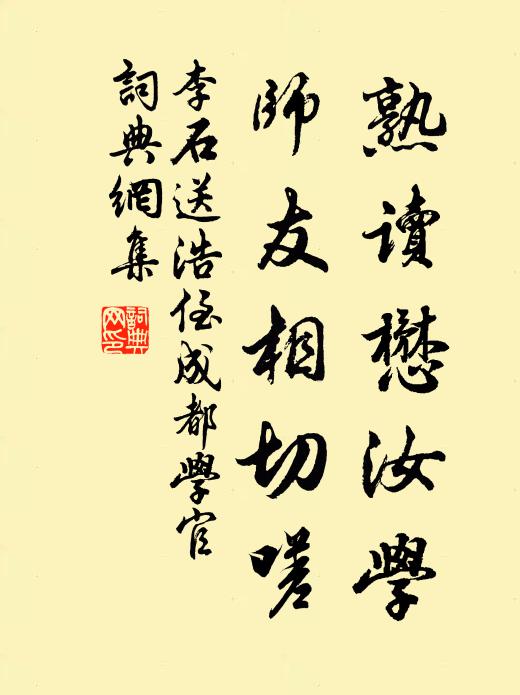 熟讀懋汝學
師友相切嗟
李石送浩侄成都學官
詞典網集
詞典
网印